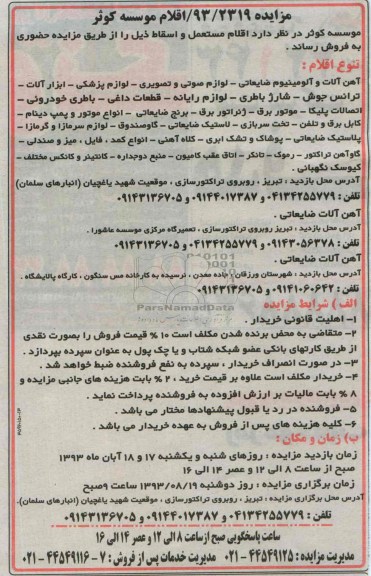 مزایده ۹۳/۲۳۱۹/اقلام موسسه کوثر
موسسه کوثر در نظر دارد اقلام مستعمل و اسقاط ذیل را از طریق مزایده حضوری
به فروش رساند .
تنوع اقلام :
آهن آلات و آلومینیوم ضایعاتی - لوازم صوتی و تصویری - لوازم پزشکی - ابزار آلات -
ترانس جوش - شارژ باطری - لوازم رایانه - قطعات داغی - باطری خودرونی -
اتصالات پلیکا - موتور برق - ژنراتور برق - برنج ضایعاتی - انواع موتور و پمپ دینام -
کابل برق و تلفن - تخت سربازی - لاستیک ضایعاتی - گاوصندوق - لوازم سرمازا و گرمازا -
پلاستیک ضایعاتی - پوشاک و تشک ابری - کلاه آهنی - انواع کمد ، فایل ، میز و صندلی -
گاوآهن تراکتور - رموک - تانکر - اتاق عقب کامیون - منبع دوجداره - کانتینر و کانکس مختلف -
کیوسک نگهبانی .
آدرس محل بازدید : تبریز ، روبروی تراکتورسازی ، موقعیت شهید یاغچیان (انبارهای سلمان)
تلفن : ۰۴۱۳۴۲۵۵۷۷۹ و ۰۹۱۴۴۰۱۷۳۸۷ و ۰۹۱۴۳۱۳۶۷۰۵
آهن آلات ضایعاتی .
آدرس محل بازدید : تبریز روبروی تراکتورسازی ، تعمیرگاه مرکزی موسسه عاشورا .
تلفن : ۰۹۱۴۳۰۵۶۳۷۸ و ۰۴۱۳۴۲۵۵۷۷۹ و ۰۹۱۴۳۱۳۶۷۰۵
آهن آلات ضایعاتی .
آدرس محل بازدید : شهرستان ورزقان ، جاده معدن ، نرسیده به کارخانه مس سنگون ، کارگاه پالایشگاه .
تلفن : ۰۹۱۴۱۰۶۰۶۴۲ و ۰۹۱۴۳۱۳۶۷۰۵
ParsNamadData
الف ) شرایط مزایده
۱- اهلیت قانونی خریدار .
۲- متقاضی به محض برنده شدن مکلف است ۱۰ % قیمت فروش را بصورت نقدی
از طریق کارتهای بانکی عضو شبکه شتاب و یا چک پول به عنوان سپرده بپردازد .
۳- در صورت انصراف خریدار ، سپرده به نفع فروشنده ضبط خواهد شد .
۴- خریدار مکلف است علاوه بر قیمت خرید ، ۲ % بابت هزینه های جانبی مزایده و
۸ % بابت مالیات بر ارزش افزوده به فروشنده پرداخت نماید .
۵- فروشنده در رد یا قبول پیشنهادها مختار می باشد .
۶- کلیه هزینه های پس از فروش به عهده خریدار می باشد .
ب) زمان و مکان :
زمان بازدید مزایده : روزهای شنبه و یکشنبه ۱۷ و ۱۸ آبان ماه ۱۳۹۳
صبح از ساعت ۸ الی ۱۲ و عصر ۱۴ الی ۱۶
زمان برگزاری مزایده : روز دوشنبه ۱۳۹۳/۰۸/۱۹ ساعت ۹صبح
آدرس محل برگزاری مزایده : تبریز ، روبروی تراکتورسازی ، موقعیت شهید یاغچیان (انبارهای سلمان).
تلفن : ۰۴۱۳۴۲۵۵۷۷۹ و ۰۹۱۴۴۰۱۷۳۸۷ و ۰۹۱۴۳۱۳۶۷۰۵
ساعت پاسخگویی صبح ازساعت ۸ الی ۱۲ و عصر ۱۴ الی ۱۶
مدیریت مزایده : ۴۴۵۴۹۱۲۵ - ۰۲۱ مدیریت خدمات پس از فروش : ۷ - ۴۴۵۴۹۱۱۶ - ۰۲۱